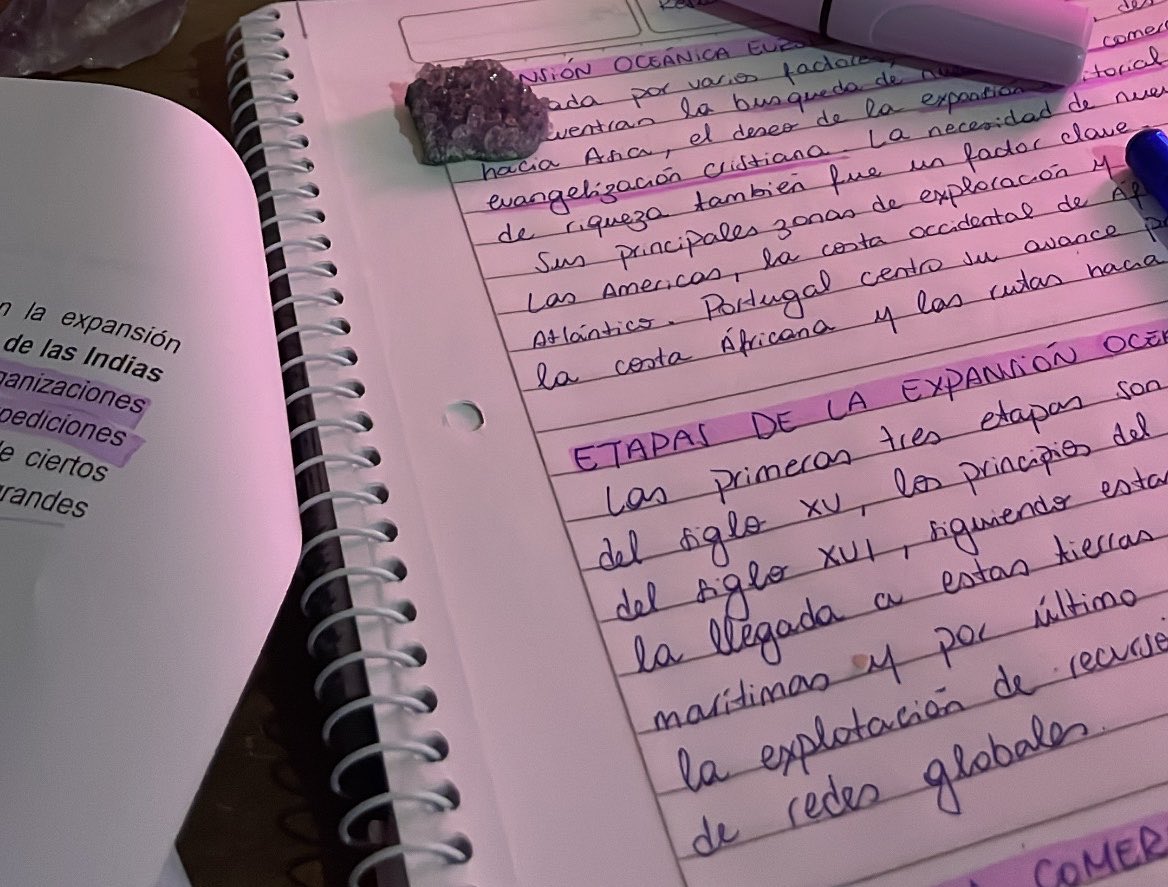 n la expansión
de las Indias
anizaciones
pediciones
e ciertos
randes
NSIÓN OCEÁNICA EUR
ada por varios factore
uentran la busqueda de nu comer
hacia Asia, el deseo de la expansión itorial
evangelización cristiana. La necesidad de nuev
de riqueza tambien fue un factor clave.
Sus principales zonas de exploración y
Las Americas, la costa occidental de Áf
Atlántico. Portugal centro su avance p
la costa Áfricana y las rutas hacia
ETAPAS DE LA EXPANSIÓN OCÉ
Las primeras tres etapas son
del siglo XV, los principios del
del siglo XVI, siguiendo esta
la llegada a estas tierras
marítimas y por último
la explotación de recurso
de redes globales.
COMER